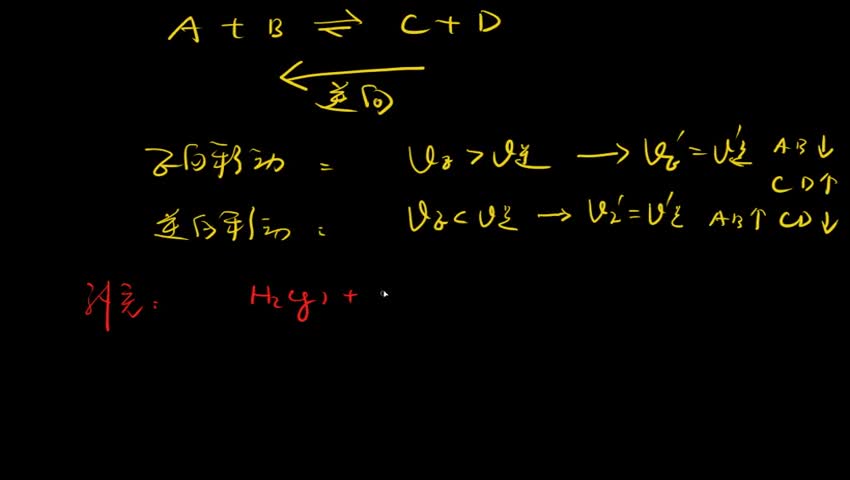 A + B ⇌ C + D
逆向
正向移动: V正 > V逆 → V正' = V逆' AB↓ CD↑
逆向移动: V正 < V逆 → V正' = V逆' AB↑ CD↓
补充: H₂(g) +